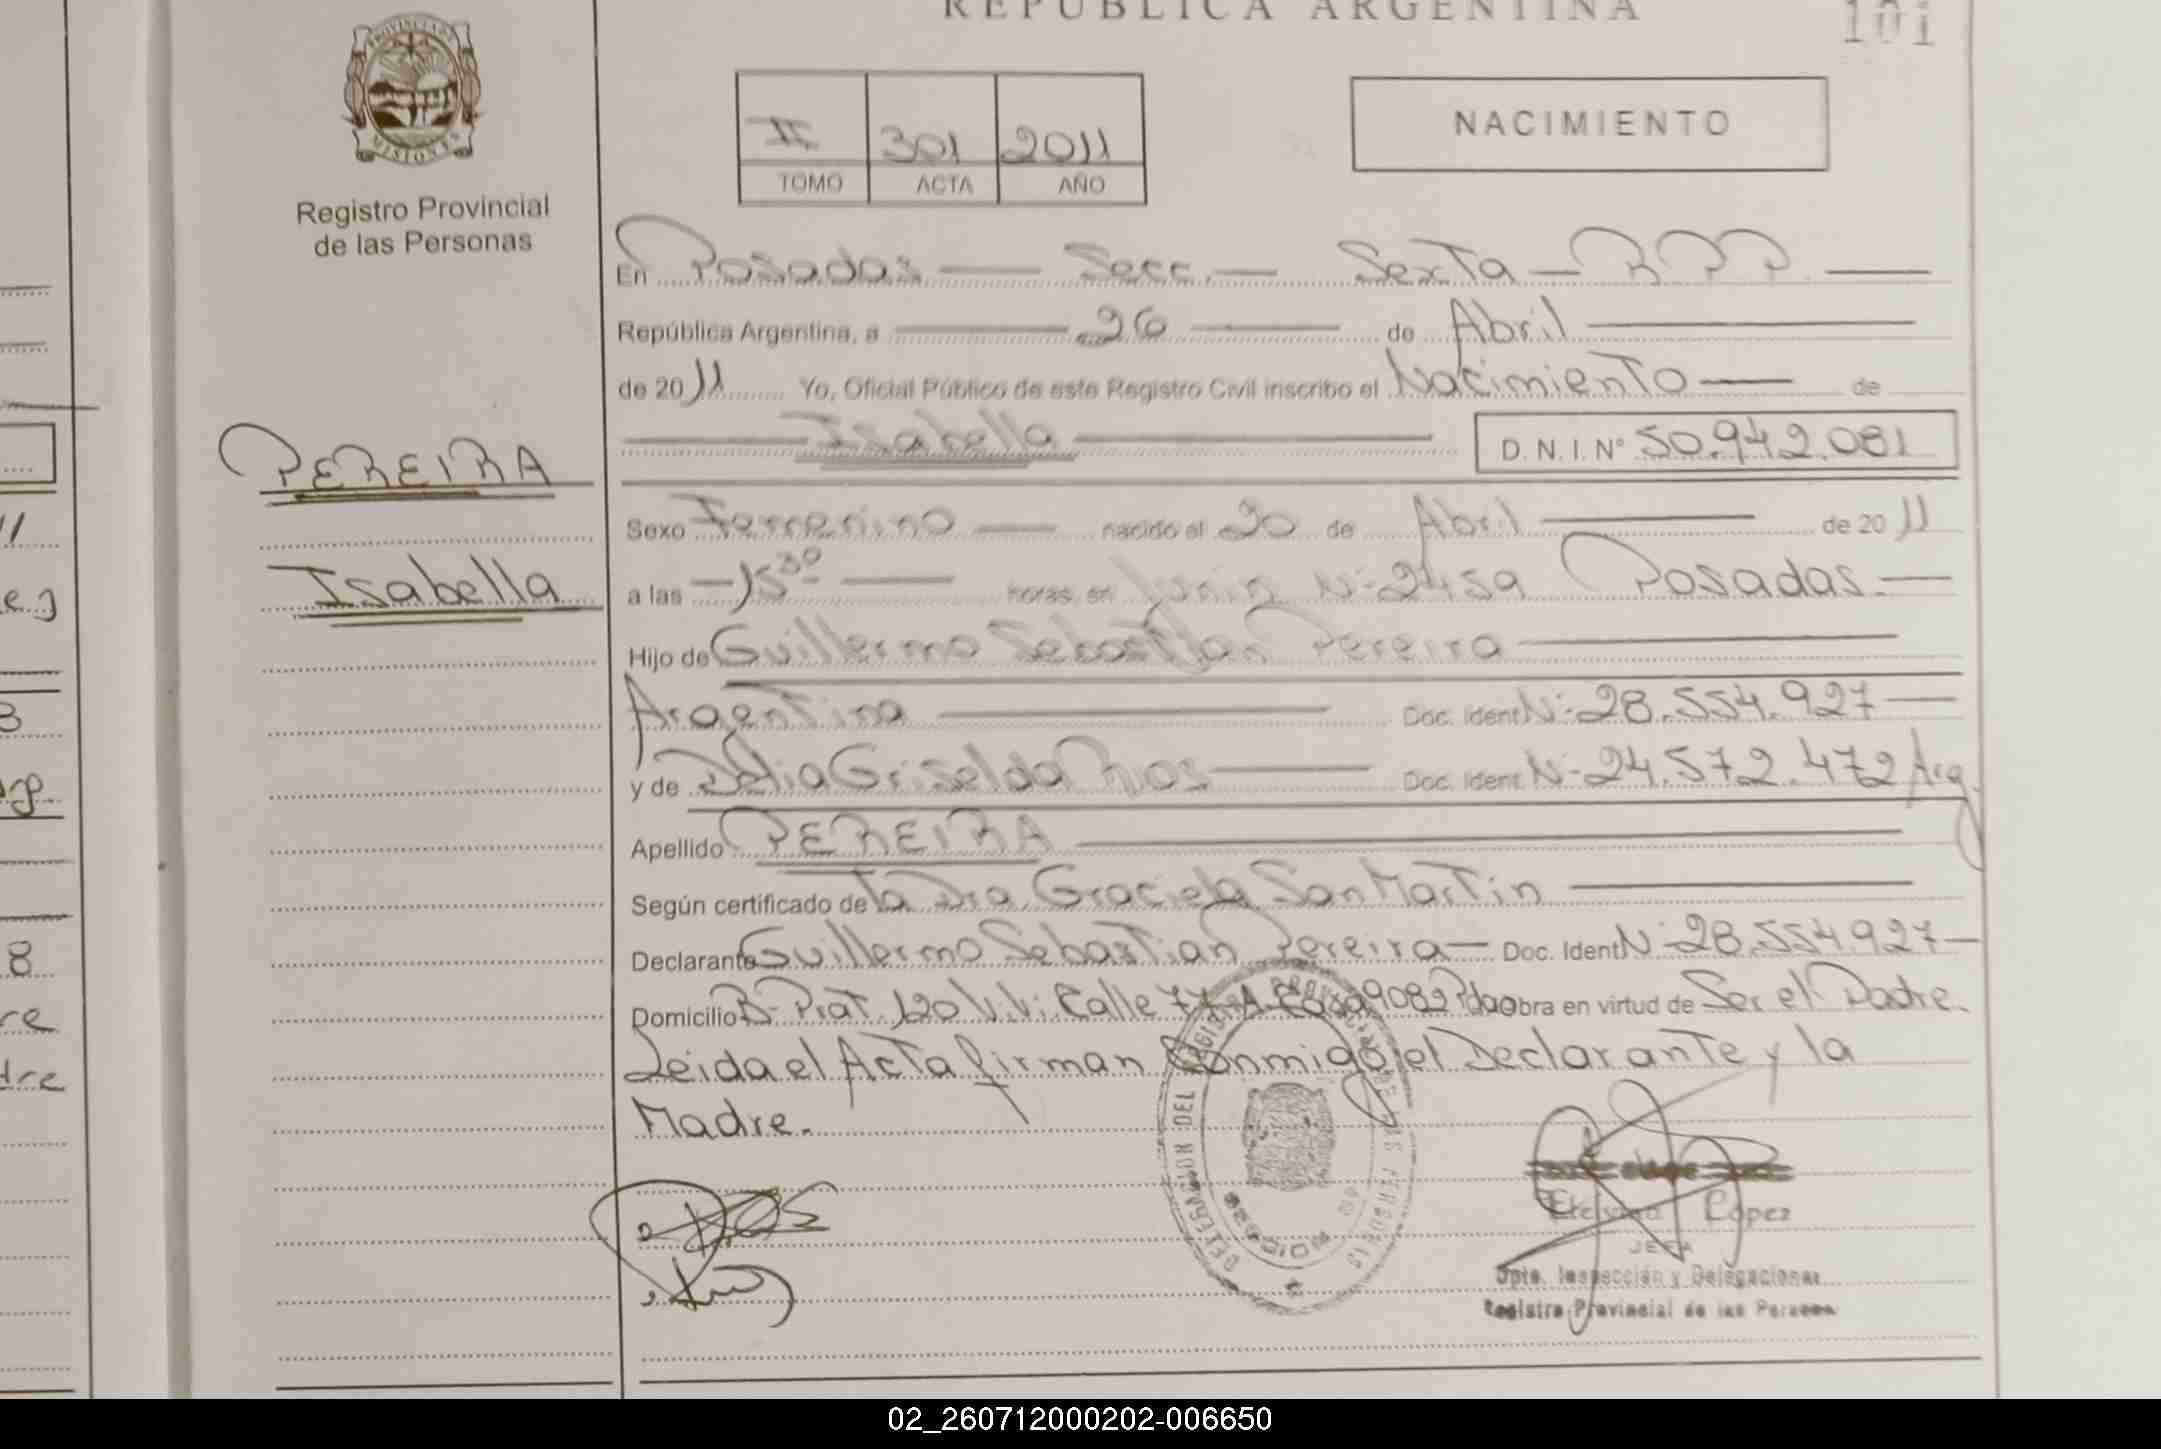 REPUBLICA ARGENTINA
101
PROVINCIA DE
MISIONES
Registro Provincial
de las Personas
II 301 2011
TOMO ACTA AÑO
NACIMIENTO
En Posadas — Secc. — Sexta — R P P. —
República Argentina, a — 26 — de Abril —
de 20 11 Yo, Oficial Público de este Registro Civil inscribo el Nacimiento — de
— Isabella — D. N. I. Nº 50.942.081
PEREIRA
Isabella
Sexo Femenino — nacido el 20 de Abril — de 20 11
a las — 15 30 — horas en Junin Nº 2459 Posadas. —
Hijo de Guillermo Sebastian Pereira —
Argentina — Doc. Ident Nº 28.554.927 —
y de Delia Griselda Rios — Doc. Ident Nº 24.572.472 Arg
Apellido PEREIRA —
Según certificado de la Dra Graciela San Martin —
Declarante Guillermo Sebastian Pereira — Doc. Ident Nº 28.554.927 —
Domicilio Bº Prat. 120 Vi.Vi: Calle 77 A Casa 9082 Pdas Obra en virtud de Ser el Padre.
Leida el Acta firman Conmigo el Declarante y la
Madre.
López
JEFA
Dpto. Inspección y Delegaciones
Registro Provincial de las Personas
02_260712000202-006650